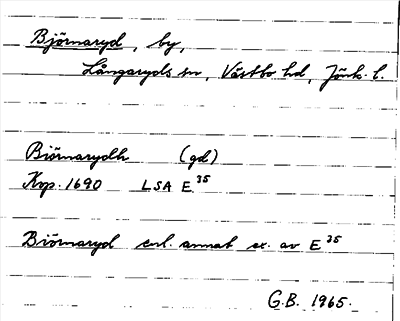 Björnaryd, by,
Långaryds sn, Västbo hd, Jönk. l.
Biörnarydh (gd)
Kop. 1690 LSA E 35
Biörnaryd enl. annat ex. av E 35
G.B. 1965.